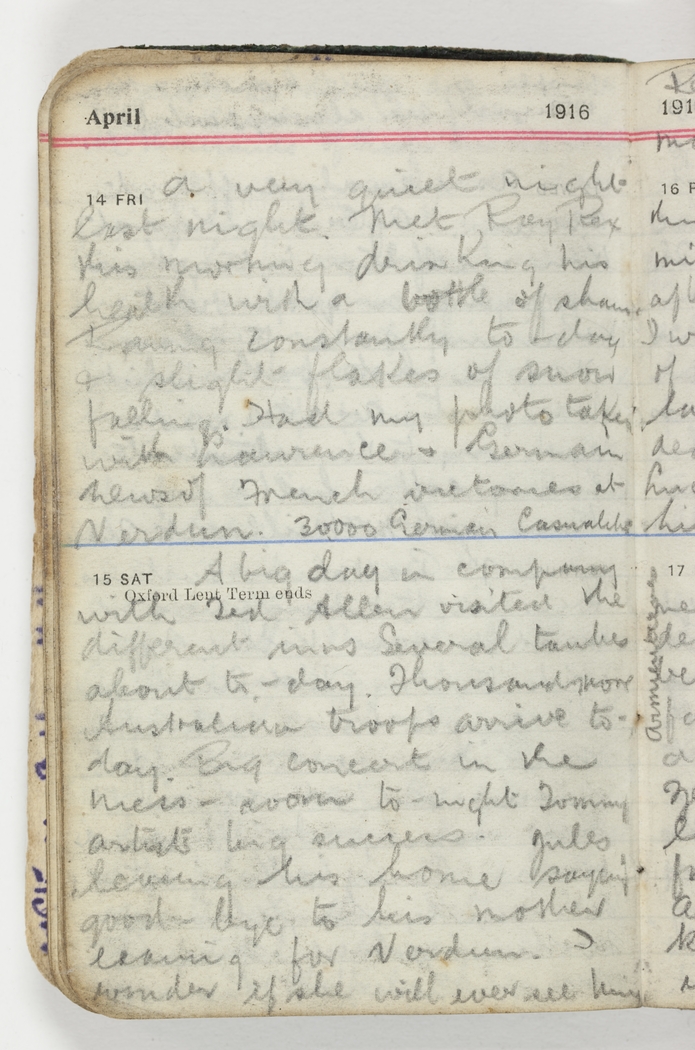 April 1916
14 FRI A very quiet night
last night. Met Roy Rex
this morning drinking his
health with a bottle of sham.
Raining constantly to-day
& slight flakes of snow
falling. Had my photo taken
with Lawrence & German
news of French victories at
Verdun. 30000 German Casualties
15 SAT A big day in company
Oxford Lent Term ends
with Ted Allen visited the
different inns Several taubes
about to-day. Thousand more
Australian troops arrive to-
day. Big concert in the
mess-room to-night Tommy
artists big success. Jules
leaving his home saying
good-bye to his mother
leaving for Verdun. I
wonder if she will ever see him
191
16
17
Armentieres